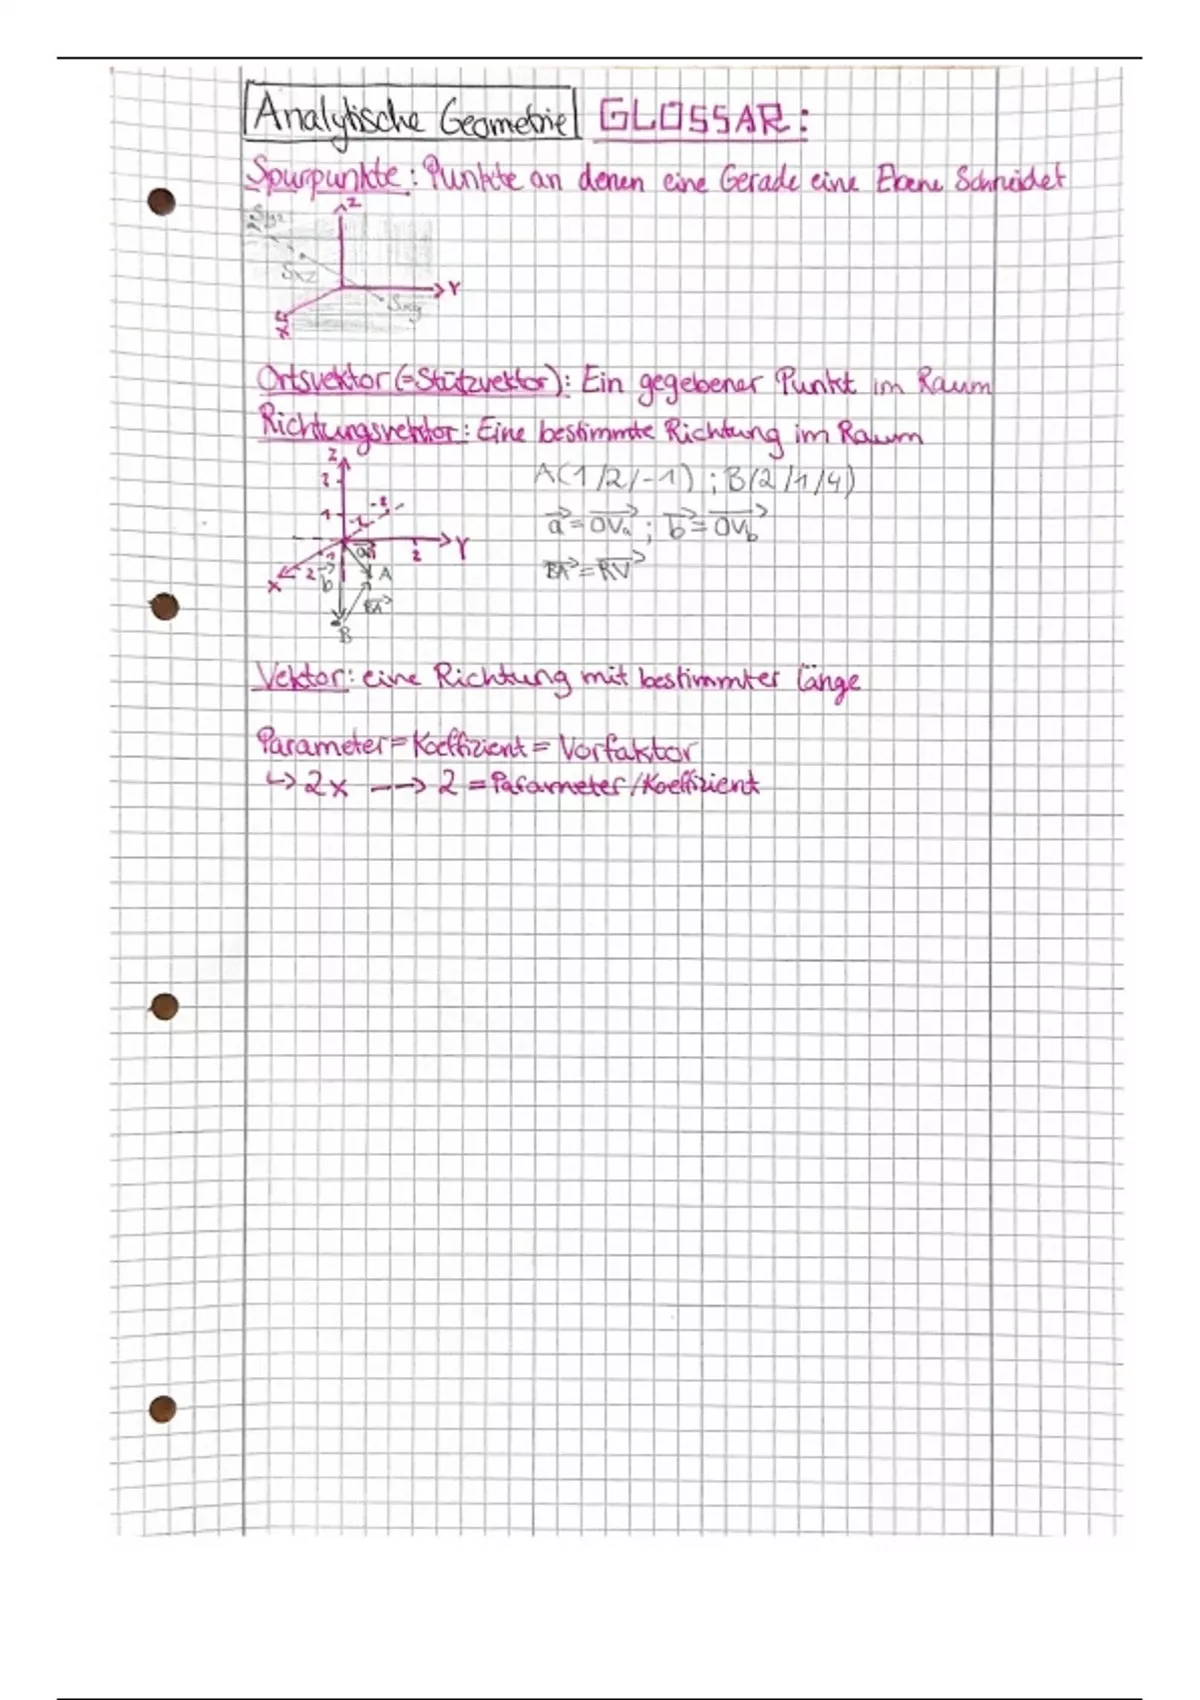 Analytische Geometrie GLOSSAR:
Spurpunkte: Punkte an denen eine Gerade eine Ebene Schneidet
z
Syz
Sxz
Y
Sxy
X
Ortsvektor (=Stützvektor): Ein gegebener Punkt im Raum
Richtungsvektor: Eine bestimmte Richtung im Raum
z
2
A(1/2/-1) ; B(2/1/4)
1 -1 -2
a⃗ = OVa⃗ ; b⃗ = OVb⃗
1 a⃗ 2 Y
X 2 b⃗ A
BA⃗ = RV⃗
BA⃗
B
Vektor: eine Richtung mit bestimmter Länge
Parameter = Koeffizient = Vorfaktor
↳ 2x --→ 2 = Parameter/Koeffizient